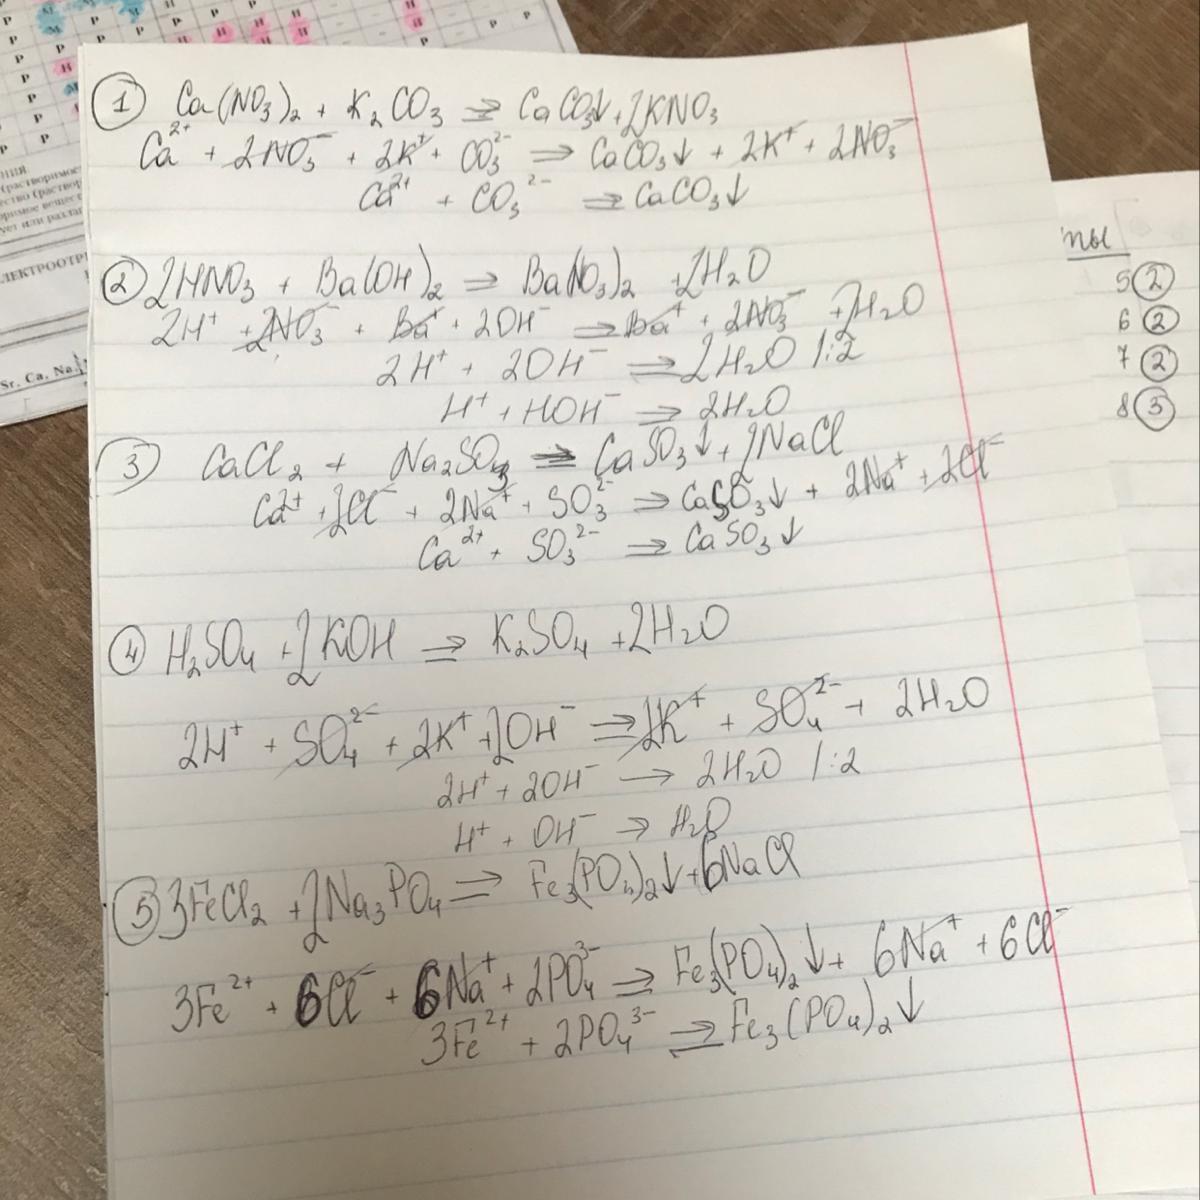 р м м Н Р Р Р
Р Р Н Н Н — — Н Р Р
НИЯ:
(растворимос
ество (раствор
оримое вещес
ует или разлаг
ЛЕКТРООТР
Sr, Ca, Na,
① Ca(NO3)2 + K2CO3 ⇒ CaCO3↓ + 2KNO3
Ca2+ + 2NO3- + 2K+ + CO32- ⇒ CaCO3↓ + 2K+ + 2NO3-
Ca2+ + CO32- ⇒ CaCO3↓
② 2HNO3 + Ba(OH)2 ⇒ Ba(NO3)2 + 2H2O
2H+ + 2NO3- + Ba+ + 2OH- ⇒ Ba+ + 2NO3- + 2H2O
2H+ + 2OH- ⇒ 2H2O /:2
H+ + HOH- ⇒ 2H2O
③ CaCl2 + Na2SO3 ⇒ CaSO3↓ + 2NaCl
Ca2+ + 2Cl- + 2Na+ + SO32- ⇒ CaSO3↓ + 2Na+ + 2Cl-
Ca2+ + SO32- ⇒ CaSO3↓
④ H2SO4 + 2KOH ⇒ K2SO4 + 2H2O
2H+ + SO42- + 2K+ + 2OH- ⇒ 2K+ + SO42- + 2H2O
2H+ + 2OH- → 2H2O /:2
H+ + OH- → H2O
⑤ 3FeCl2 + 2Na3PO4 ⇒ Fe3(PO4)2↓ + 6NaCl
3Fe2+ + 6Cl- + 6Na+ + 2PO43- ⇒ Fe3(PO4)2↓ + 6Na+ + 6Cl-
3Fe2+ + 2PO43- ⇒ Fe3(PO4)2↓
ты
5 ②
6 ②
7 ②
8 ③